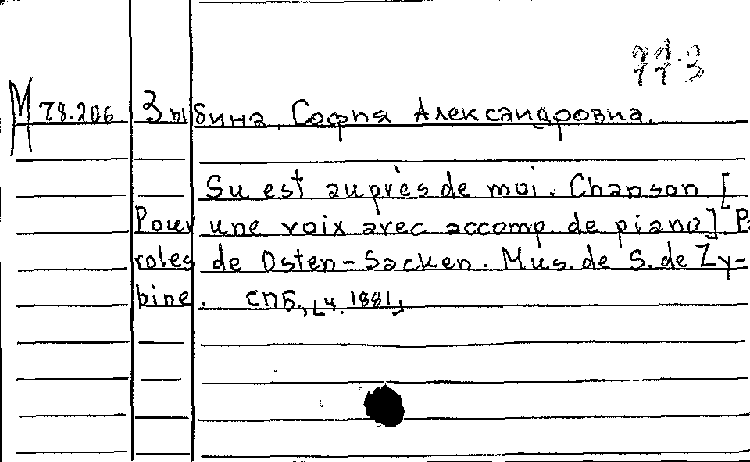 773
М 78.206 Зыбина, София Александровна.
Su est auprès de moi. Chanson [
Pour une voix avec accomp. de piano]. Pa
roles de Osten-Sacken. Mus. de S. de Zy-
bine. СПб., [ц. 1881]